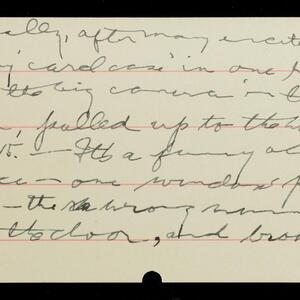 ally, after many excit
'card case' in one h
the big camera in
, pulled up to the h
15. – It's a funny ol
ce – one window f
– the wrong num
the door, and bro